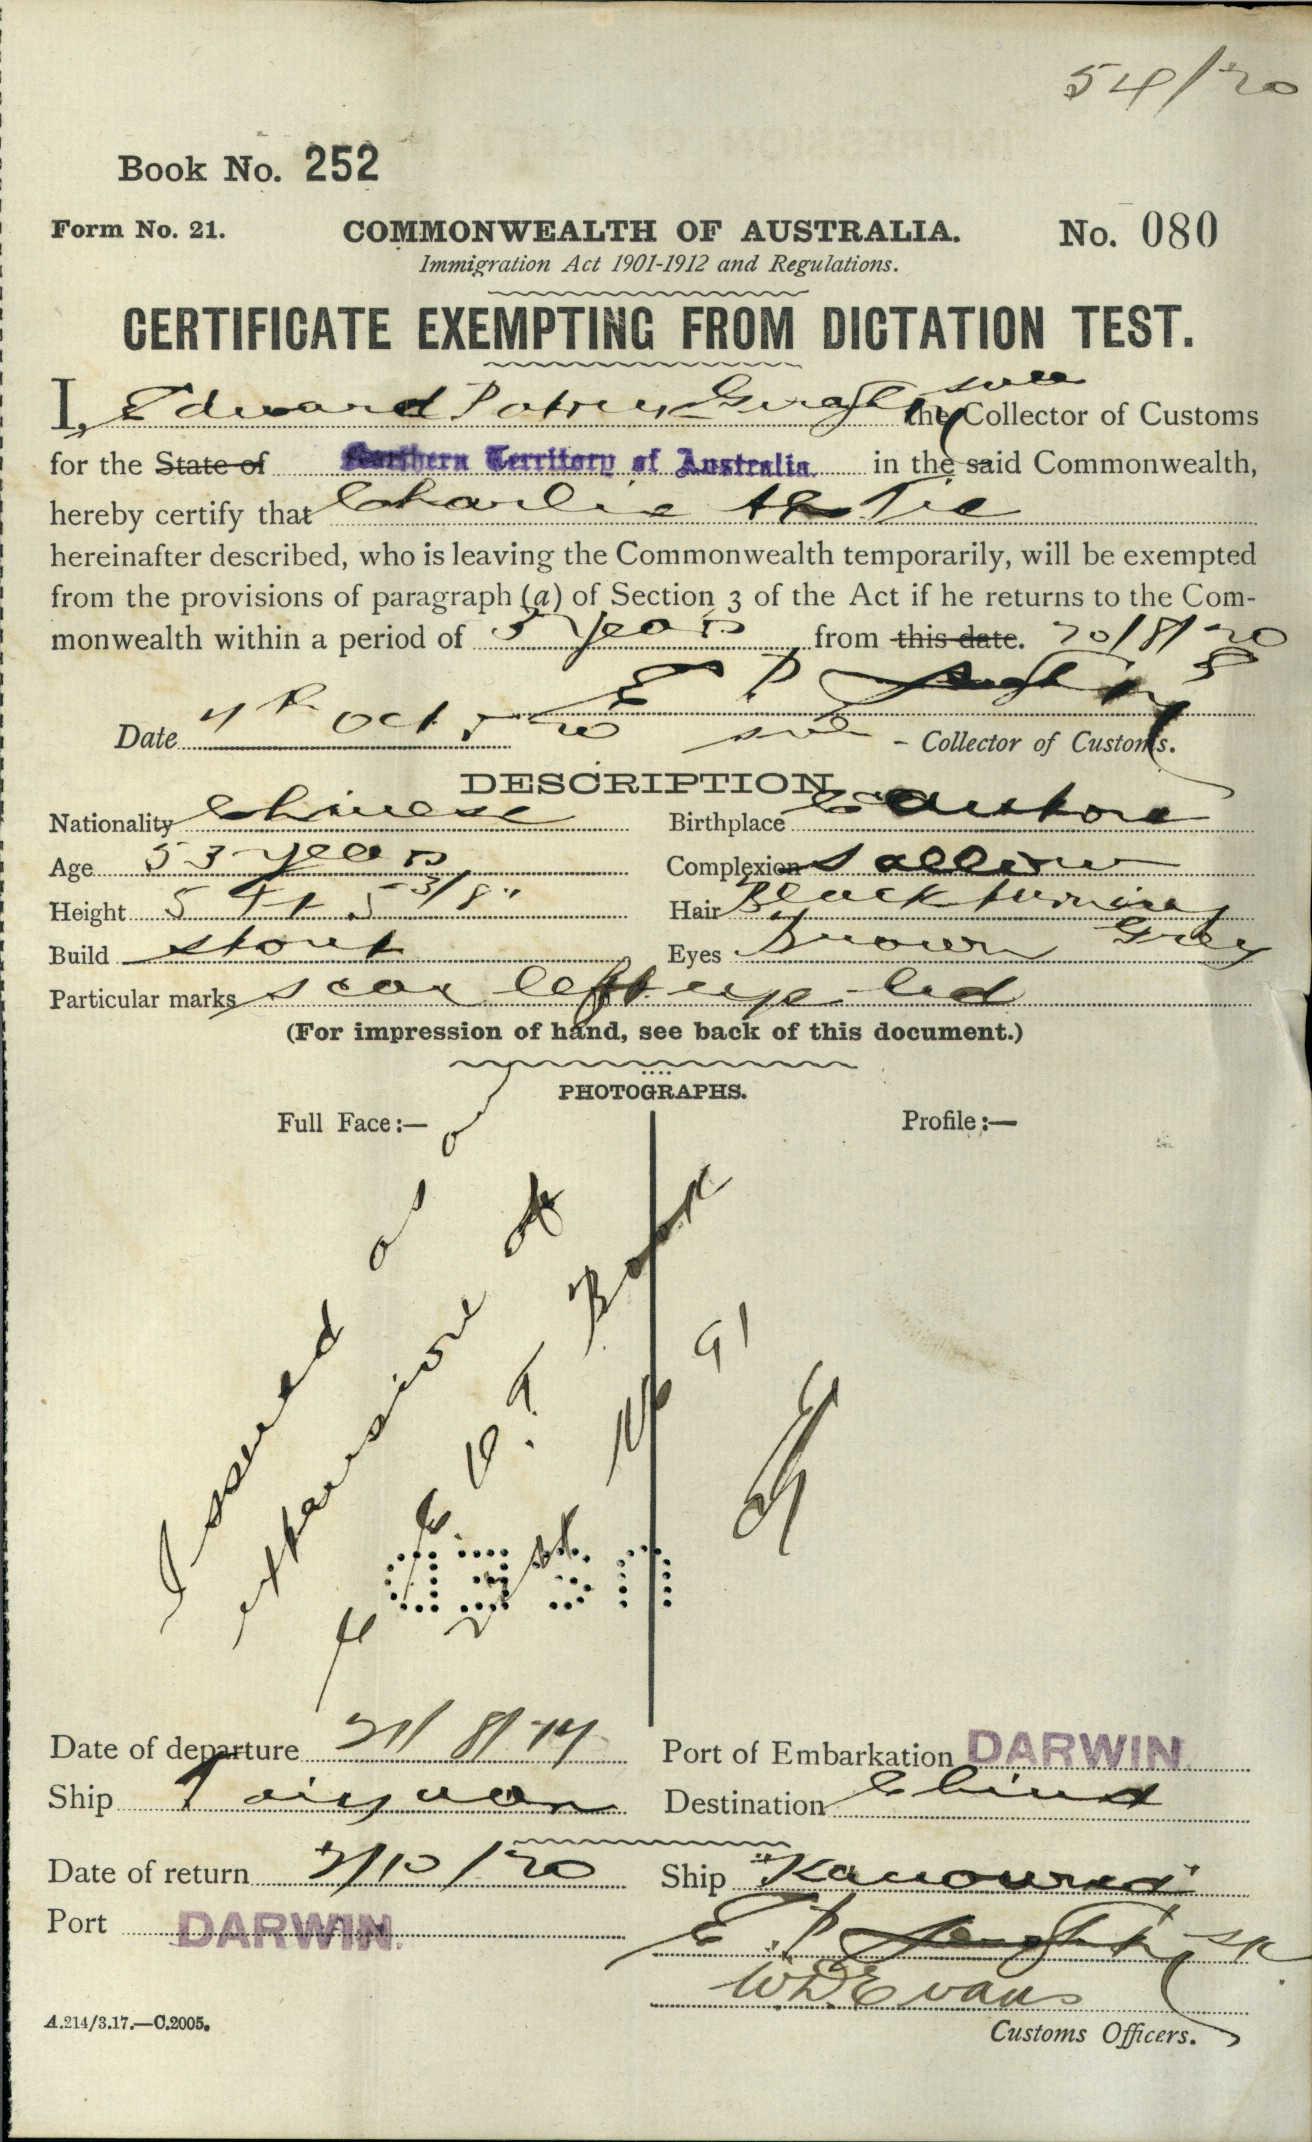 54/20
Book No. 252
Form No. 21. COMMONWEALTH OF AUSTRALIA. No. 080
Immigration Act 1901-1912 and Regulations.
CERTIFICATE EXEMPTING FROM DICTATION TEST.
I, Edward Patrick Geraghty the Collector of Customs
for the State of Northern Territory of Australia in the said Commonwealth,
hereby certify that Charlie Ah Tie
hereinafter described, who is leaving the Commonwealth temporarily, will be exempted
from the provisions of paragraph (a) of Section 3 of the Act if he returns to the Com-
monwealth within a period of 3 years from this date. 20/8/20
E P Geraghty
Date 4th Oct 20 Collector of Customs.
DESCRIPTION
Nationality Chinese Birthplace Canton
Age 53 years Complexion Sallow
Height 5 ft 5 3/8" Hair Black turning Grey
Build stout Eyes Brown
Particular marks scar left eye lid
(For impression of hand, see back of this document.)
PHOTOGRAPHS.
Full Face:— Profile:—
Issued as an
extension of
C.E.D.T. Book
No 91
USED
Date of departure 21/8/14 Port of Embarkation DARWIN
Ship Taiyuan Destination China
Date of return 2/10/20 Ship "Kanowna"
Port DARWIN.
E.P. Geraghty
W.D. Evans
A.214/3.17.—C.2005. Customs Officers.